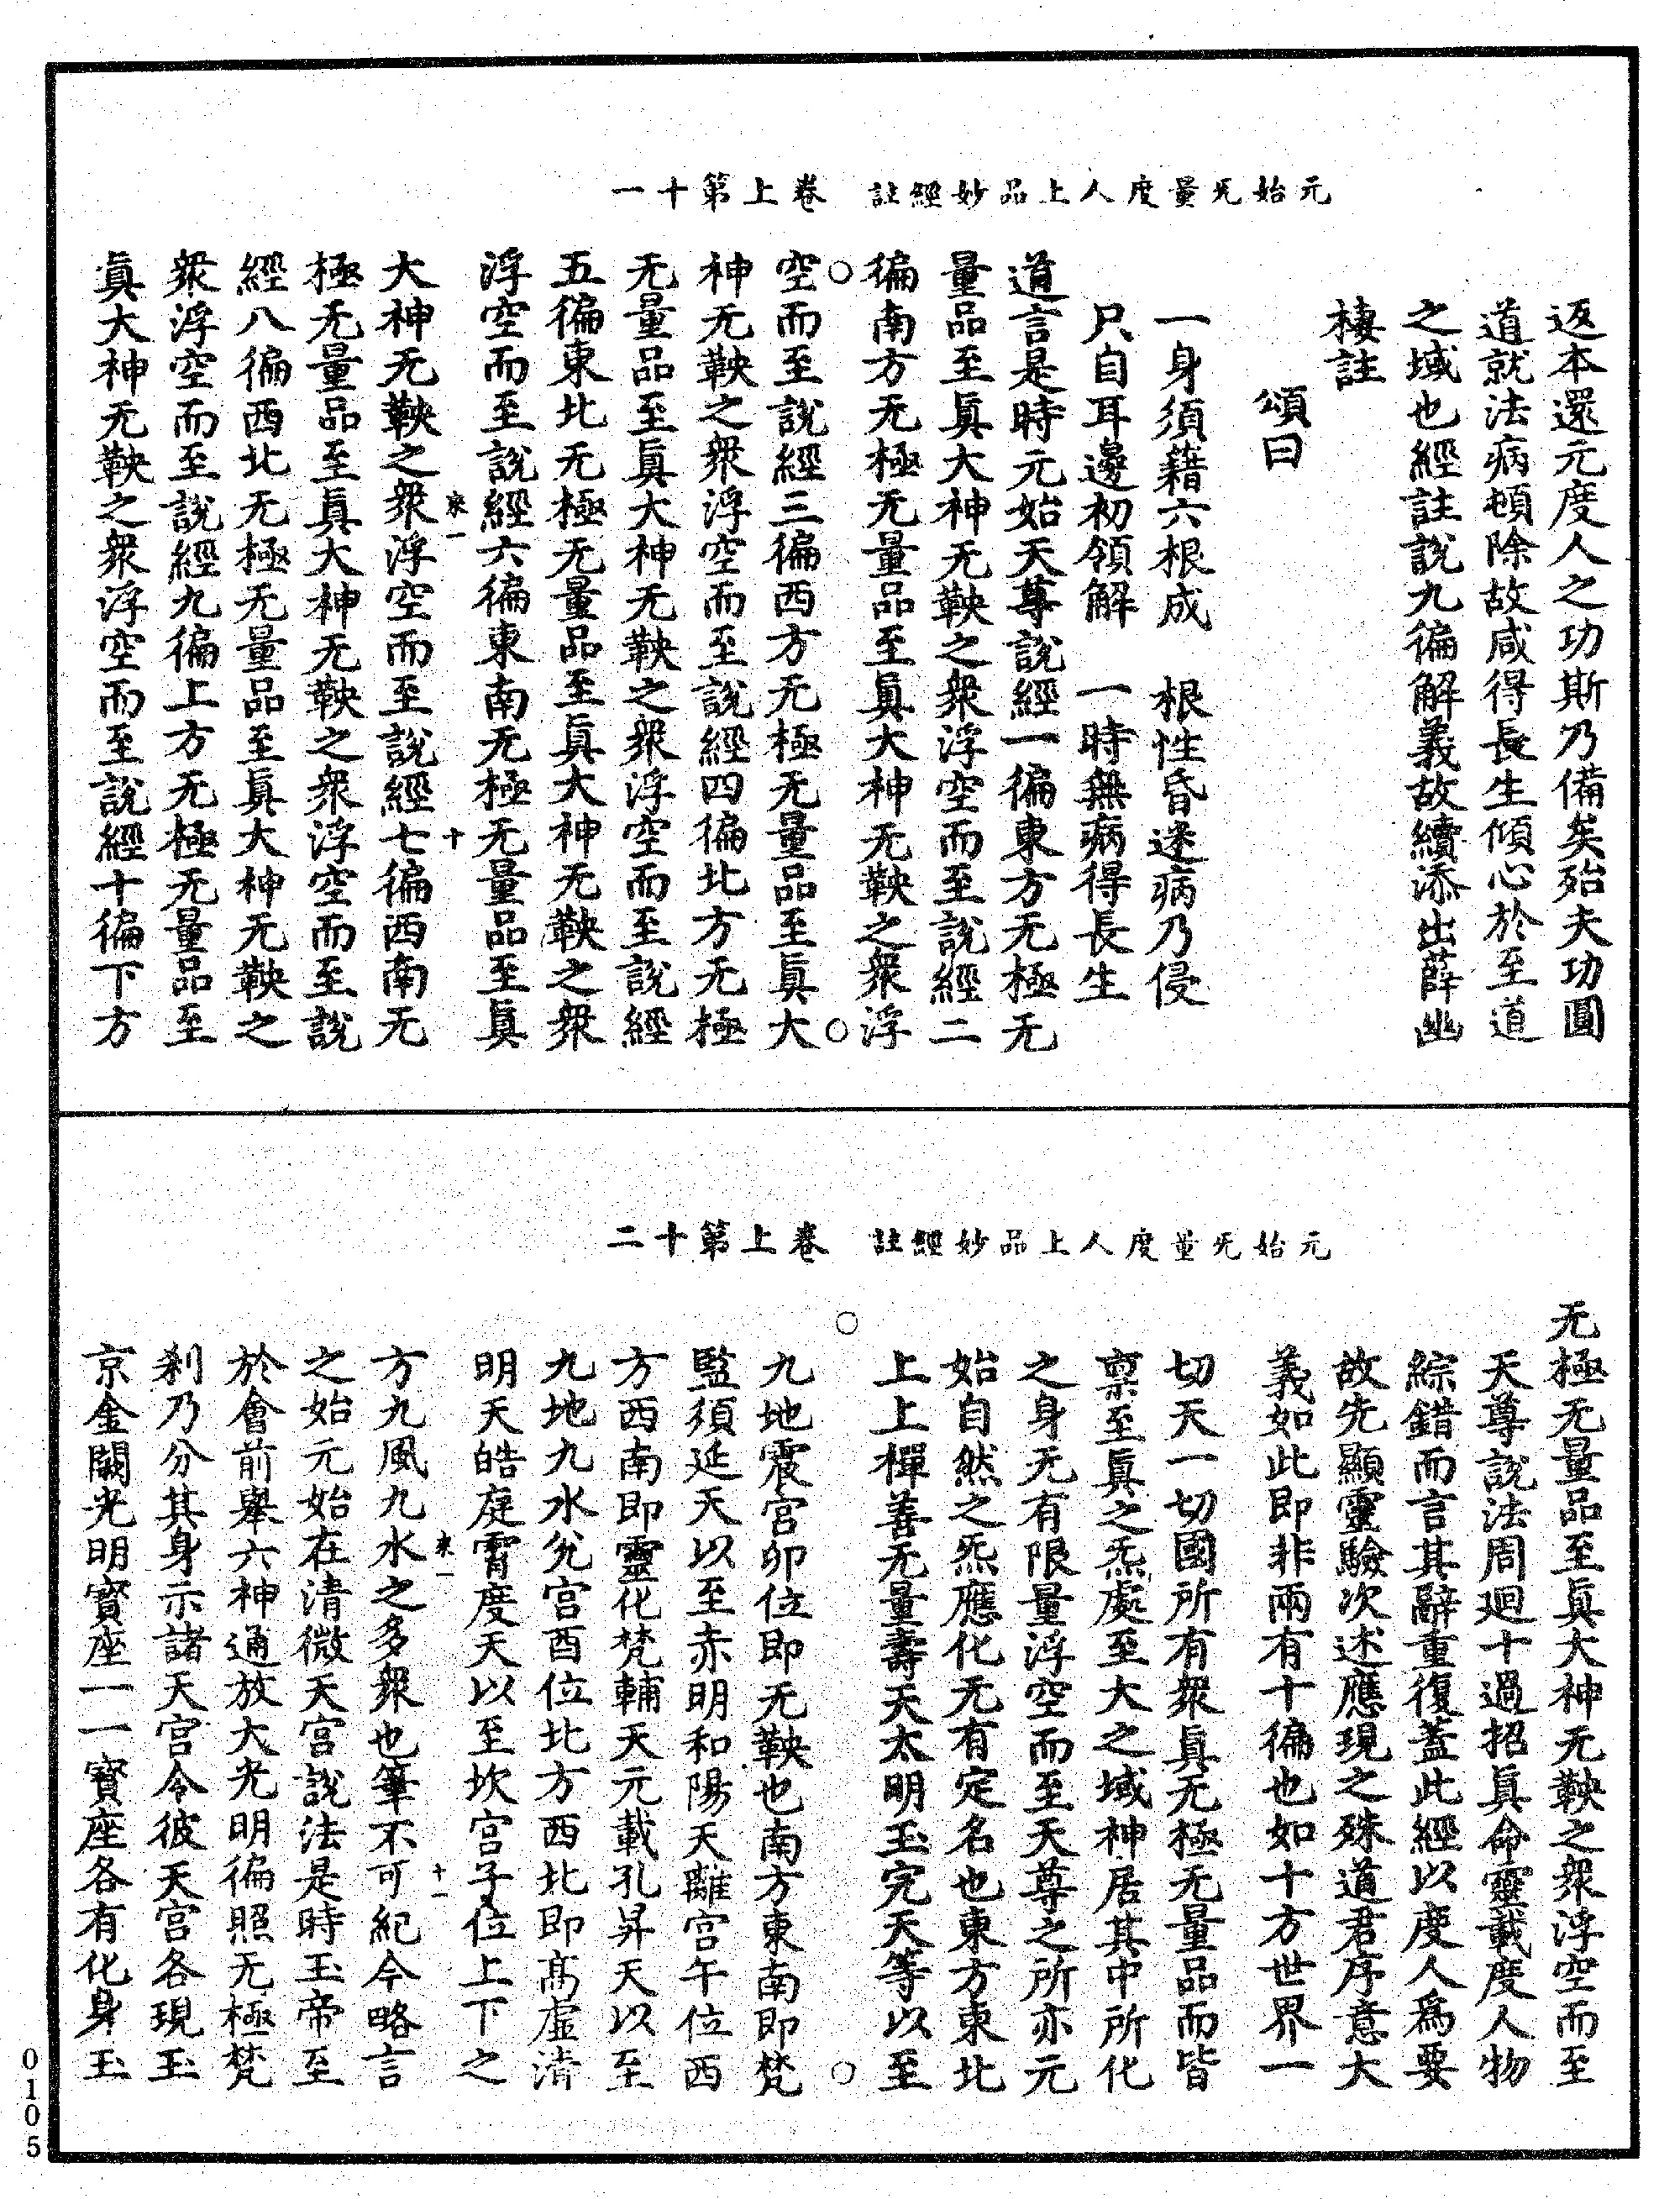 元始旡量度人上品妙經註　卷上第十一
返本還元度人之功斯乃備矣殆夫功圓
道就法病頓除故咸得長生傾心於至道
之域也經註說九徧解義故續添出薛幽
棲註
頌曰
一身須藉六根成　根性昏迷病乃侵
只自耳邊初領解　一時無病得長生
道言是時元始天尊說經一徧東方无極无
量品至眞大神无鞅之衆浮空而至說經二
徧南方无極无量品至眞大神无鞅之衆浮
空而至說經三徧西方无極无量品至眞大
神无鞅之衆浮空而至說經四徧北方无極
无量品至眞大神无鞅之衆浮空而至說經
五徧東北无極无量品至眞大神无鞅之衆
浮空而至說經六徧東南无極无量品至眞
來一　十
大神无鞅之衆浮空而至說經七徧西南无
極无量品至眞大神无鞅之衆浮空而至說
經八徧西北无極无量品至眞大神无鞅之
衆浮空而至說經九徧上方无極无量品至
眞大神无鞅之衆浮空而至說經十徧下方
元始旡量度人上品妙經註　卷上第十二
无極无量品至眞大神无鞅之衆浮空而至
天尊說法周迴十過招眞命靈載度人物
綜錯而言其辭重復蓋此經以度人爲要
故先顯靈驗次述應現之殊道君序意大
義如此即非兩有十徧也如十方世界一
切天一切國所有衆眞无極无量品而皆
稟至眞之炁處至大之域神居其中所化
之身无有限量浮空而至天尊之所亦元
始自然之炁應化无有定名也東方東北
上上樿善无量壽天太明玉完天等以至
九地震宮卯位即无鞅也南方東南即梵
監須延天以至赤明和陽天離宮午位西
方西南即靈化梵輔天元載孔昇天以至
九地九水兊宮酉位北方西北即高虛清
明天皓庭霄度天以至坎宮子位上下之
來一　十一
方九風九水之多衆也筆不可紀今略言
之始元始在清微天宮說法是時玉帝至
於會前舉六神通放大光明徧照无極梵
刹乃分其身示諸天宮令彼天宮各現玉
京金闕光明寶座一一寶座各有化身玉
0105